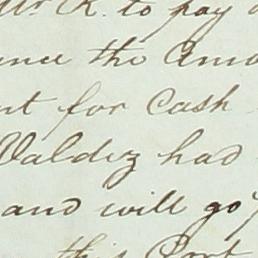 Mr K. to pay
the Amo
nt for Cash
Valdez had
and will go
this Port